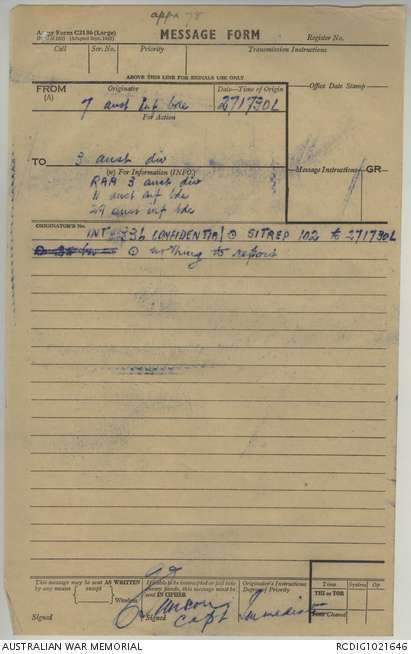 appx 78
Army Form C2136 (Large)
MESSAGE FORM
Register No.
Call Ser. No. Priority Transmission Instructions
ABOVE THIS LINE FOR SIGNALS USE ONLY
FROM Originator Date-Time of Origin Office Date Stamp
(A) 7 aust inf bde 271730L
For Action
TO 3 aust div
(W) For Information (INFO) Message Instructions GR
RAA 3 aust div
11 aust inf bde
29 aust inf bde
ORIGINATOR'S No.
INT 336 CONFIDENTIAL ⊙ SITREP 102 to 271730L
⊙ nothing to report
This message may be sent AS WRITTEN If liable to be intercepted or fall into Originator's Instructions Time System Op
by any means except enemy hands, this message must be Degree of Priority THI or TOR
Wireless sent IN CIPHER Time Cleared
Capt Immediate
Signed Signed
AUSTRALIAN WAR MEMORIAL RCDIG1021646